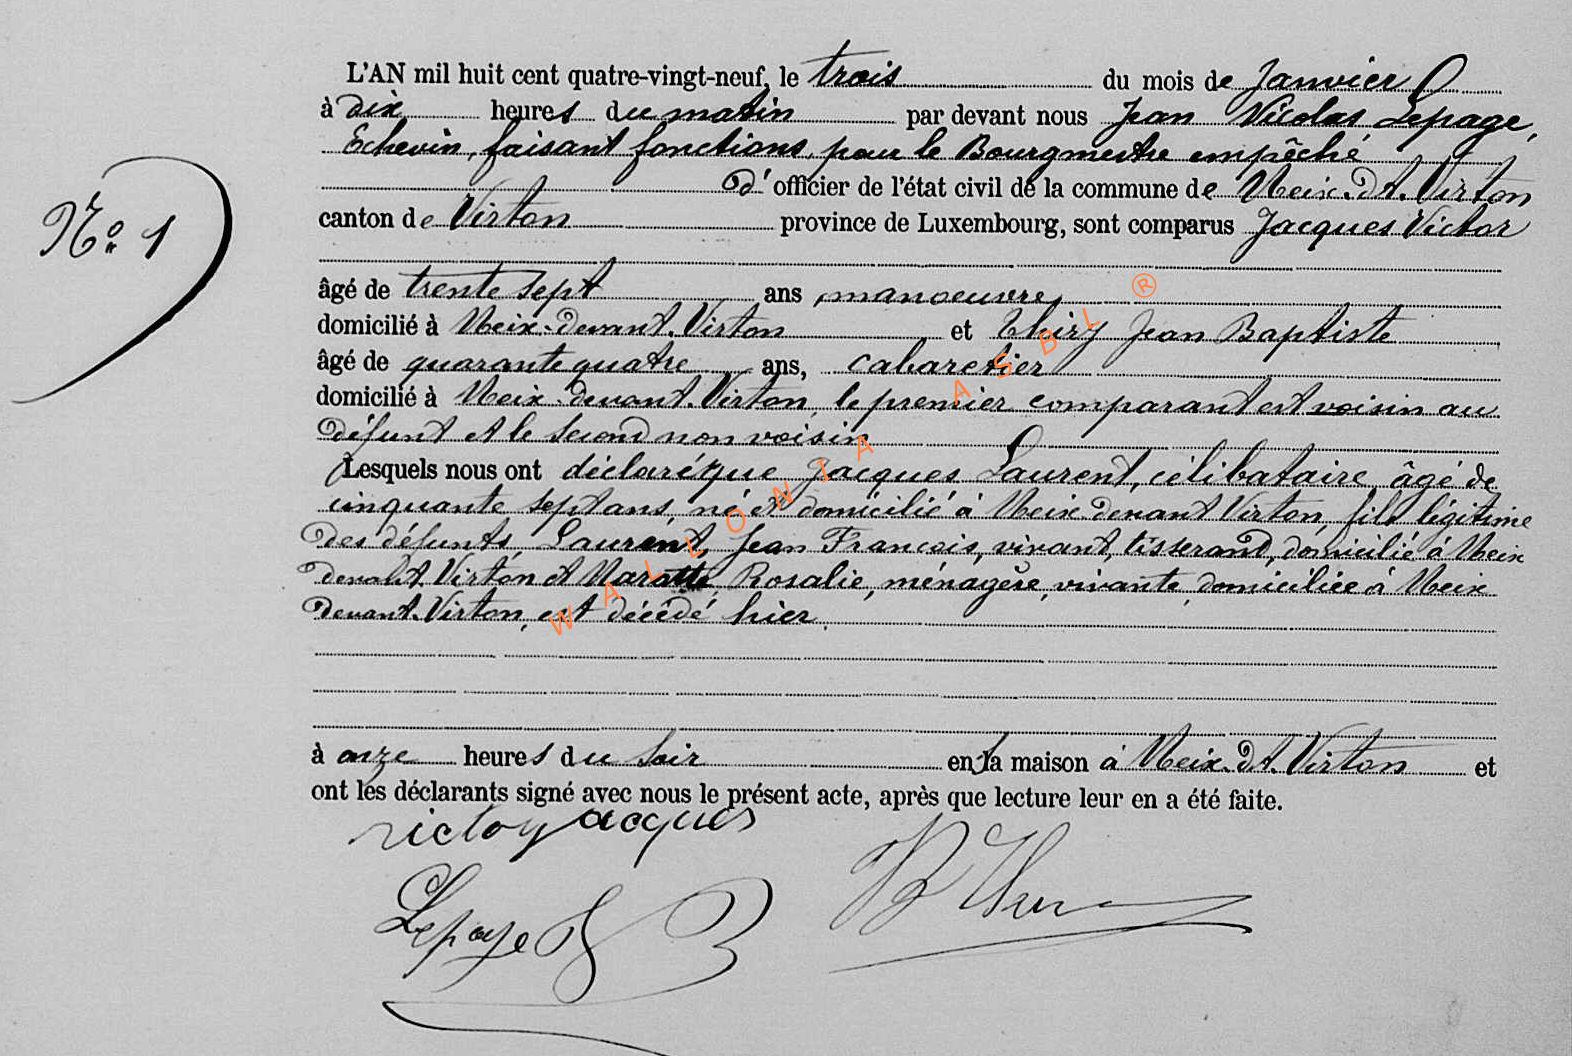 L'AN mil huit cent quatre-vingt-neuf, le trois du mois de Janvier
à dix heures du matin par devant nous Jean Nicolas Lepage,
Echevin, faisant fonctions, pour le Bourgmestre empêché
d' officier de l'état civil de la commune de Meix-dt-Virton
canton de Virton province de Luxembourg, sont comparus Jacques Victor
N° 1
âgé de trente sept ans, manoeuvre,
domicilié à Meix-devant-Virton et Thiry Jean Baptiste
âgé de quarante quatre ans, cabaretier
domicilié à Meix-devant-Virton, le premier comparant est voisin au
défunt et le second non voisin
Lesquels nous ont déclaré que Jacques Laurent, célibataire, âgé de
cinquante sept ans, né et domicilié à Meix devant Virton, fils légitime
des défunts, Laurent, Jean François, vivant, tisserand, domicilié à Meix
devant Virton et Rosalie, ménagère, vivante, domiciliée à Meix
devant-Virton, est décédé hier
à onze heures du soir en sa maison à Meix-dt-Virton et
ont les déclarants signé avec nous le présent acte, après que lecture leur en a été faite.
victor jacques
Lepage
WALLONIA ASBL ®